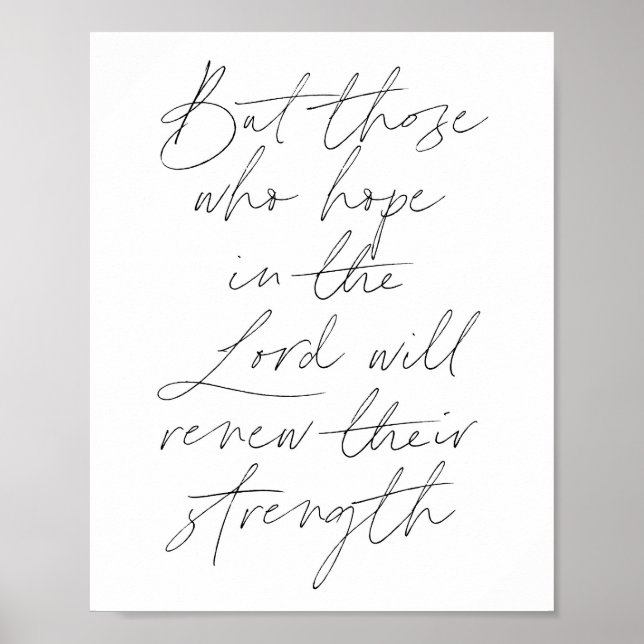 But those
who hope
in the
Lord will
renew their
strength